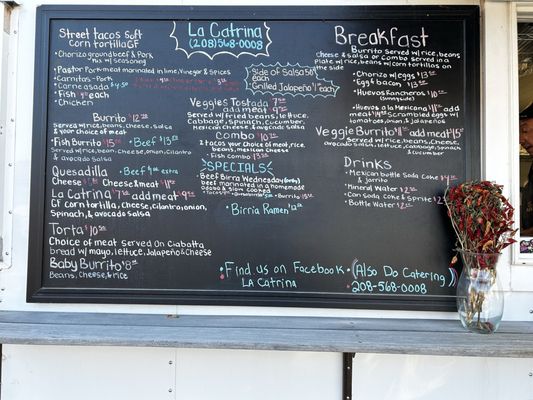 Street Tacos Soft
Corn tortilla GF
• Chorizo ground beef & Pork
mix w/ seasoning
• Pastor Pork meat marinated in lime, Vinegar & spices
• Carnitas - Pork
• Carne asada
• Fish each
• Chicken
Burrito $12.75
Served w/ rice, beans, cheese, salsa
& your choice of meat
• Fish Burrito $15 • Beef $13
Served w/ rice, bean, cheese, onion, cilantro
& avocado salsa
Quesadilla • Beef extra
Cheese Cheese & meat
La Catrina add meat
GF corn tortilla, cheese, cilantro, onion,
Spinach, & avocado salsa
Torta $10.50
Choice of meat served on Ciabatta
bread w/ mayo, lettuce, jalapeño & cheese
Baby Burrito
Beans, cheese, & rice
La Catrina
(208) 568-0008
Side of Salsa 50¢
each
Grilled Jalapeño $1 each
Veggies Tostada
add meat
Served w/ fried beans, lettuce,
Cabbage, spinach, cucumber,
mexican cheese & avocado salsa
Combo
2 tacos your choice of meat, rice,
beans, mexican cheese
• Fish combo
SPECIALS
Beef Birria Wednesday
Beef marinated in a homemade
• Burrito
• Birria Ramen
• Find us on Facebook
La Catrina
Breakfast
Burrito served w/ rice, beans,
cheese & salsa or combo served in a
plate w/ rice, beans w/ corn tortillas on
the side
• Chorizo w/ eggs
• Egg & bacon
• Huevos Rancheros
• Huevos a la Mexicana add
meat Scrambled eggs w/
tomatoes, onion & jalapeños
Veggie Burrito add meat
Served w/ rice, beans, cheese,
avocado salsa, lettuce, cabbage, spinach
& cucumber
Drinks
• Mexican bottle soda Coke
& Jarrito
• Mineral Water
• Can Soda, Coke & Sprite
• Bottle Water
• (Also Do Catering)
208-568-0008